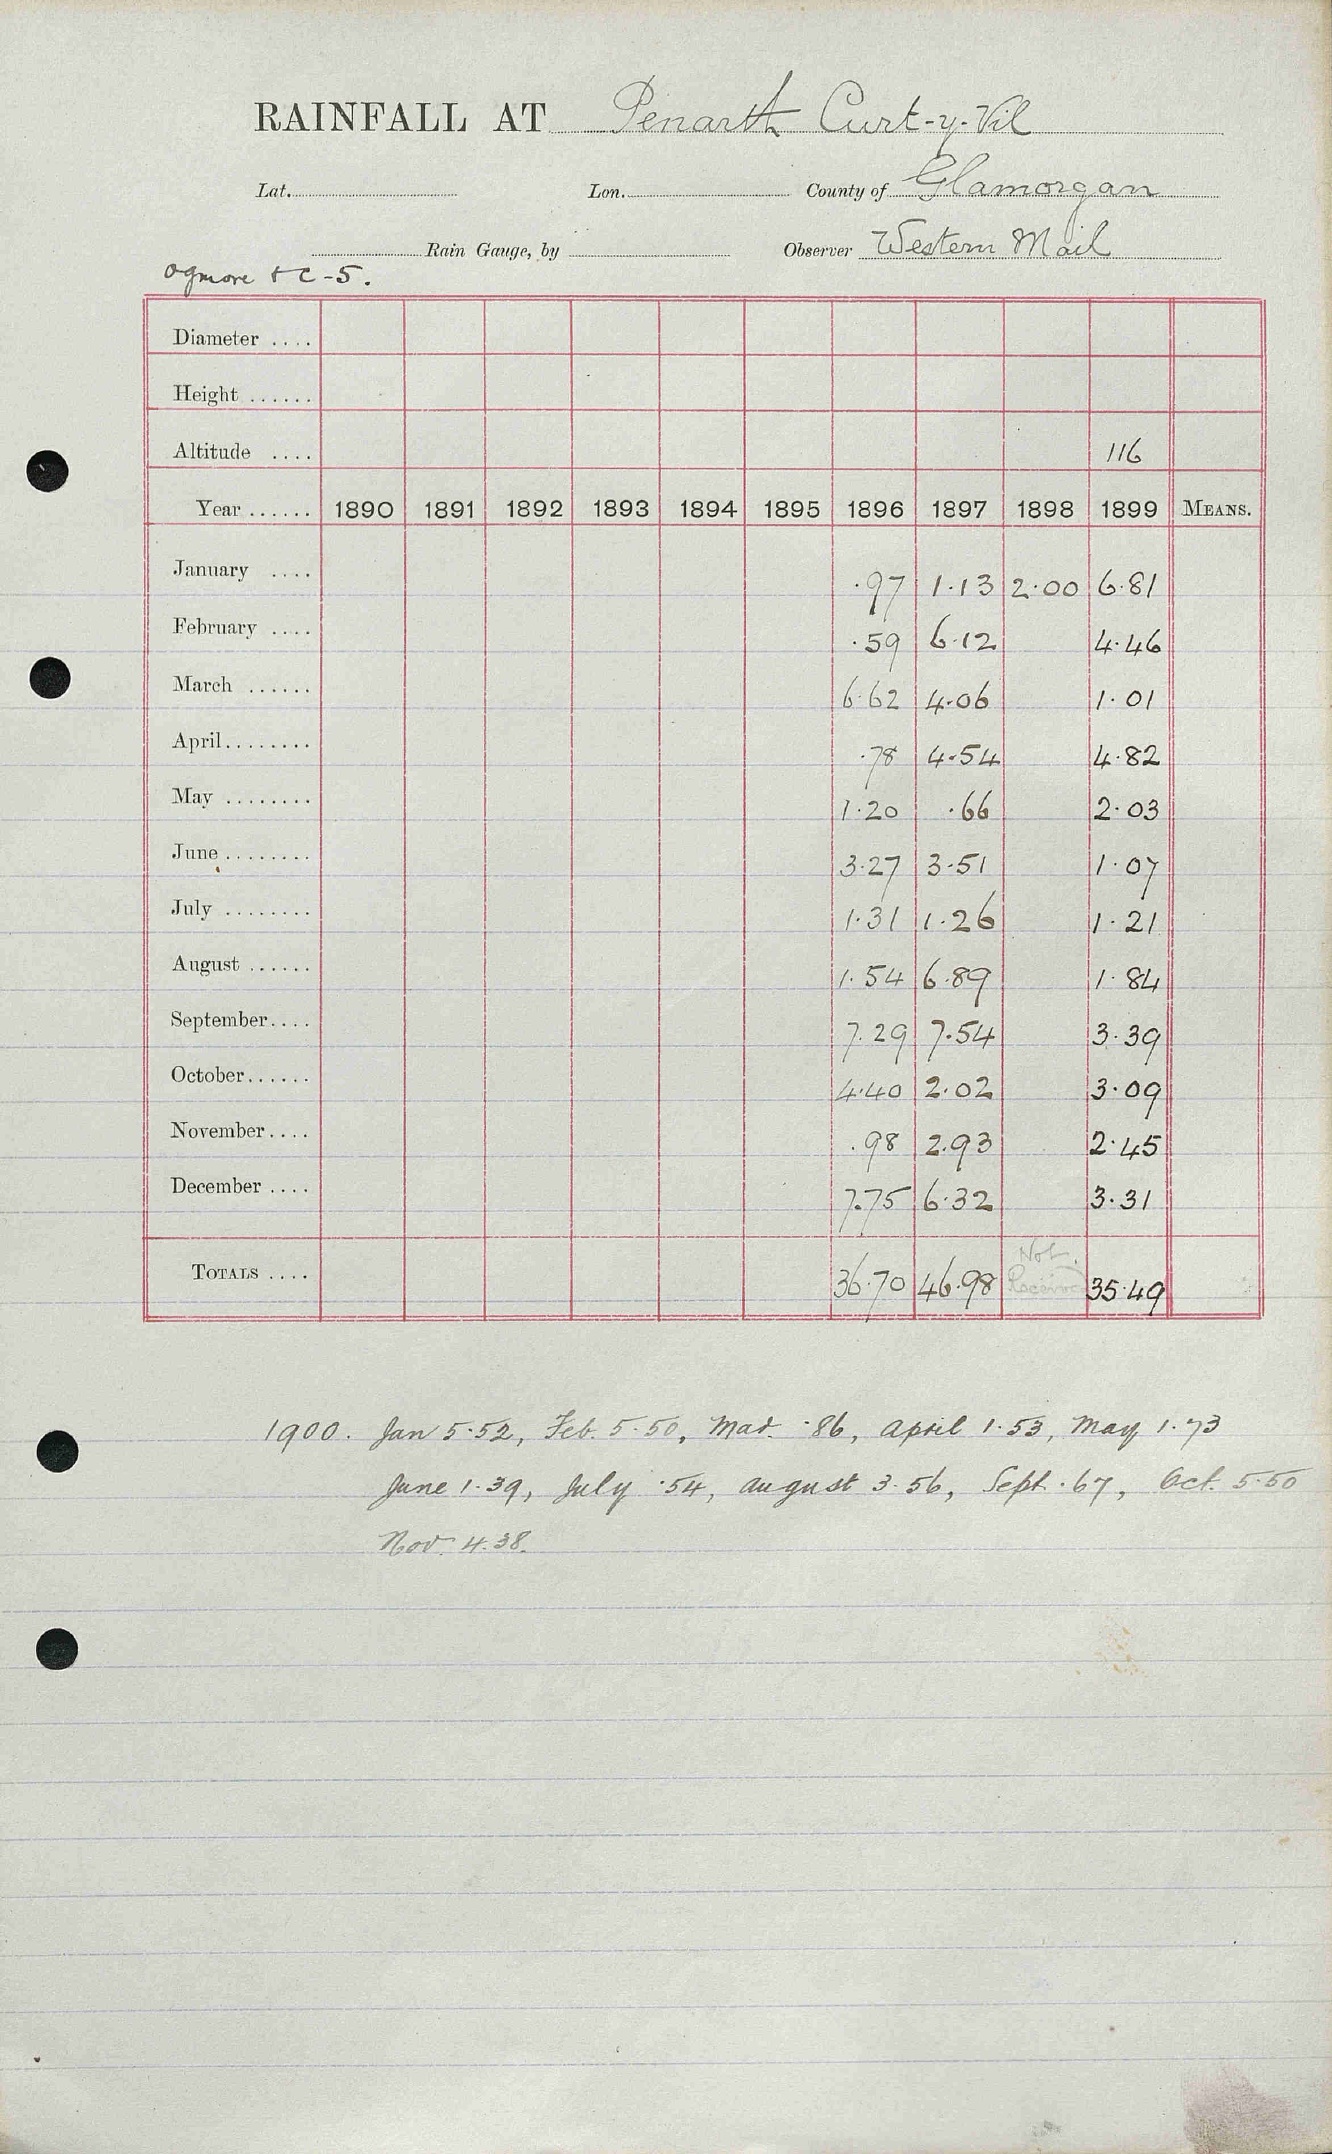 RAINFALL AT Penarth Curt-y-Vil
Lat. Lon. County of Glamorgan
Rain Gauge, by Observer Western Mail
Ogmore & C - 5.
Diameter ....
Height ......
Altitude .... 116
Year ...... 1890 1891 1892 1893 1894 1895 1896 1897 1898 1899 MEANS.
January .... .97 1.13 2.00 6.81
February .... .59 6.12 4.46
March ...... 6.62 4.06 1.01
April........ .78 4.54 4.82
May ........ 1.20 .66 2.03
June ........ 3.27 3.51 1.07
July ........ 1.31 1.26 1.21
August ...... 1.54 6.89 1.84
September.... 7.29 7.54 3.39
October...... 4.40 2.02 3.09
November.... .98 2.93 2.45
December .... 7.75 6.32 3.31
TOTALS .... 36.70 46.98 Not Received 35.49
1900. Jan 5.52, Feb. 5.50, Mar. .86, April 1.53, May 1.73
June 1.39, July .54, August 3.56, Sept .67, Oct. 5.50
Nov. 4.38.